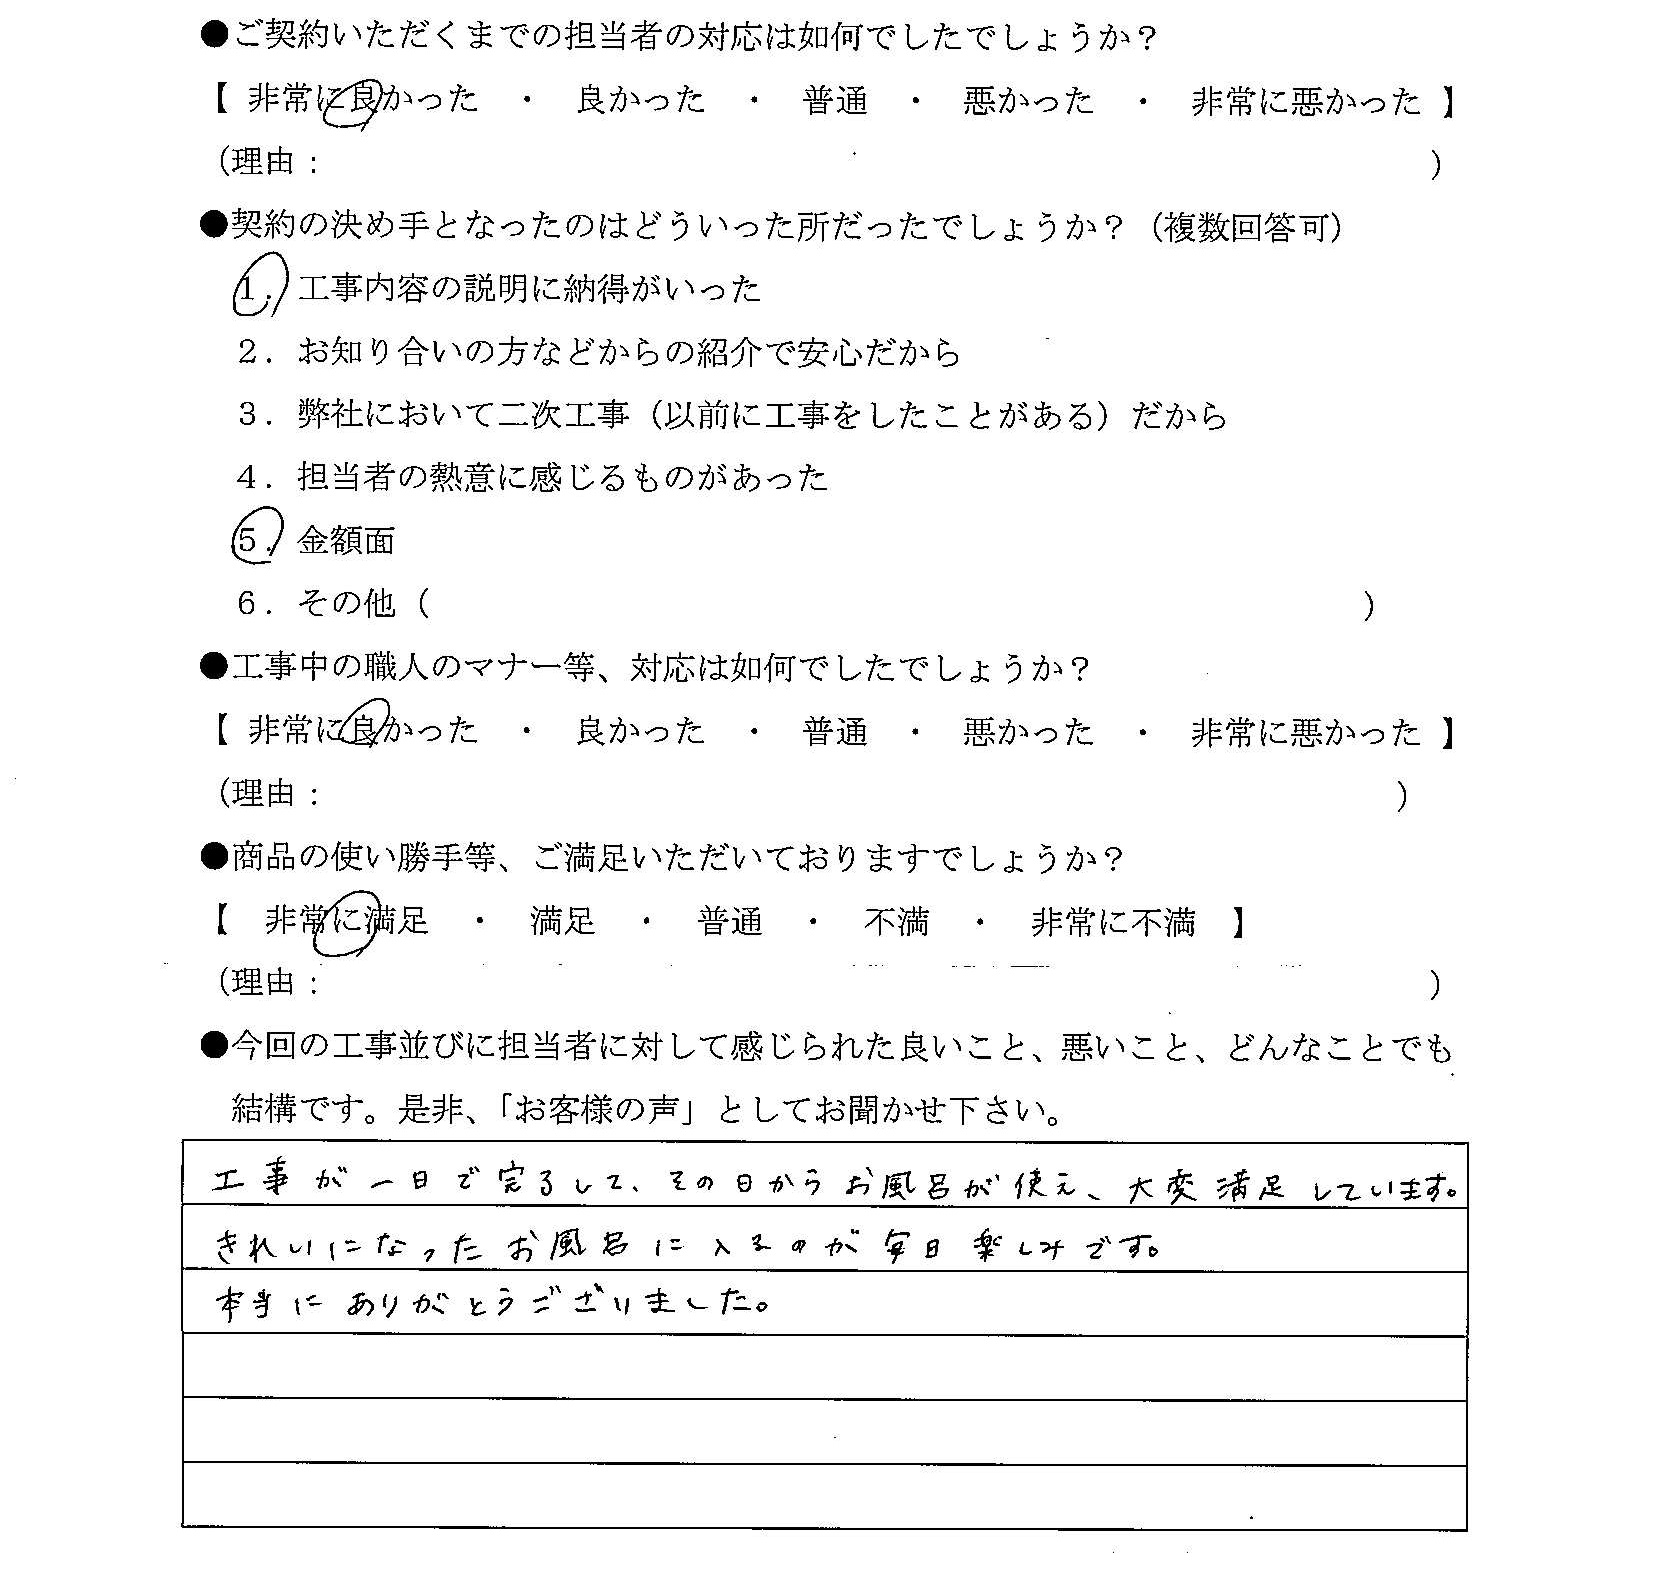 ●ご契約いただくまでの担当者の対応は如何でしたでしょうか？
【 非常に良かった ・ 良かった ・ 普通 ・ 悪かった ・ 非常に悪かった 】
（理由： ）
●契約の決め手となったのはどういった所だったでしょうか？（複数回答可）
１．工事内容の説明に納得がいった
２．お知り合いの方などからの紹介で安心だから
３．弊社において二次工事（以前に工事をしたことがある）だから
４．担当者の熱意に感じるものがあった
５．金額面
６．その他（ ）
●工事中の職人のマナー等、対応は如何でしたでしょうか？
【 非常に良かった ・ 良かった ・ 普通 ・ 悪かった ・ 非常に悪かった 】
（理由： ）
●商品の使い勝手等、ご満足いただいておりますでしょうか？
【 非常に満足 ・ 満足 ・ 普通 ・ 不満 ・ 非常に不満 】
（理由： ）
●今回の工事並びに担当者に対して感じられた良いこと、悪いこと、どんなことでも
結構です。是非、「お客様の声」としてお聞かせ下さい。
工事が一日で完了して、その日からお風呂が使え、大変満足しています。
きれいになったお風呂に入るのが毎日楽しみです。
本当にありがとうございました。